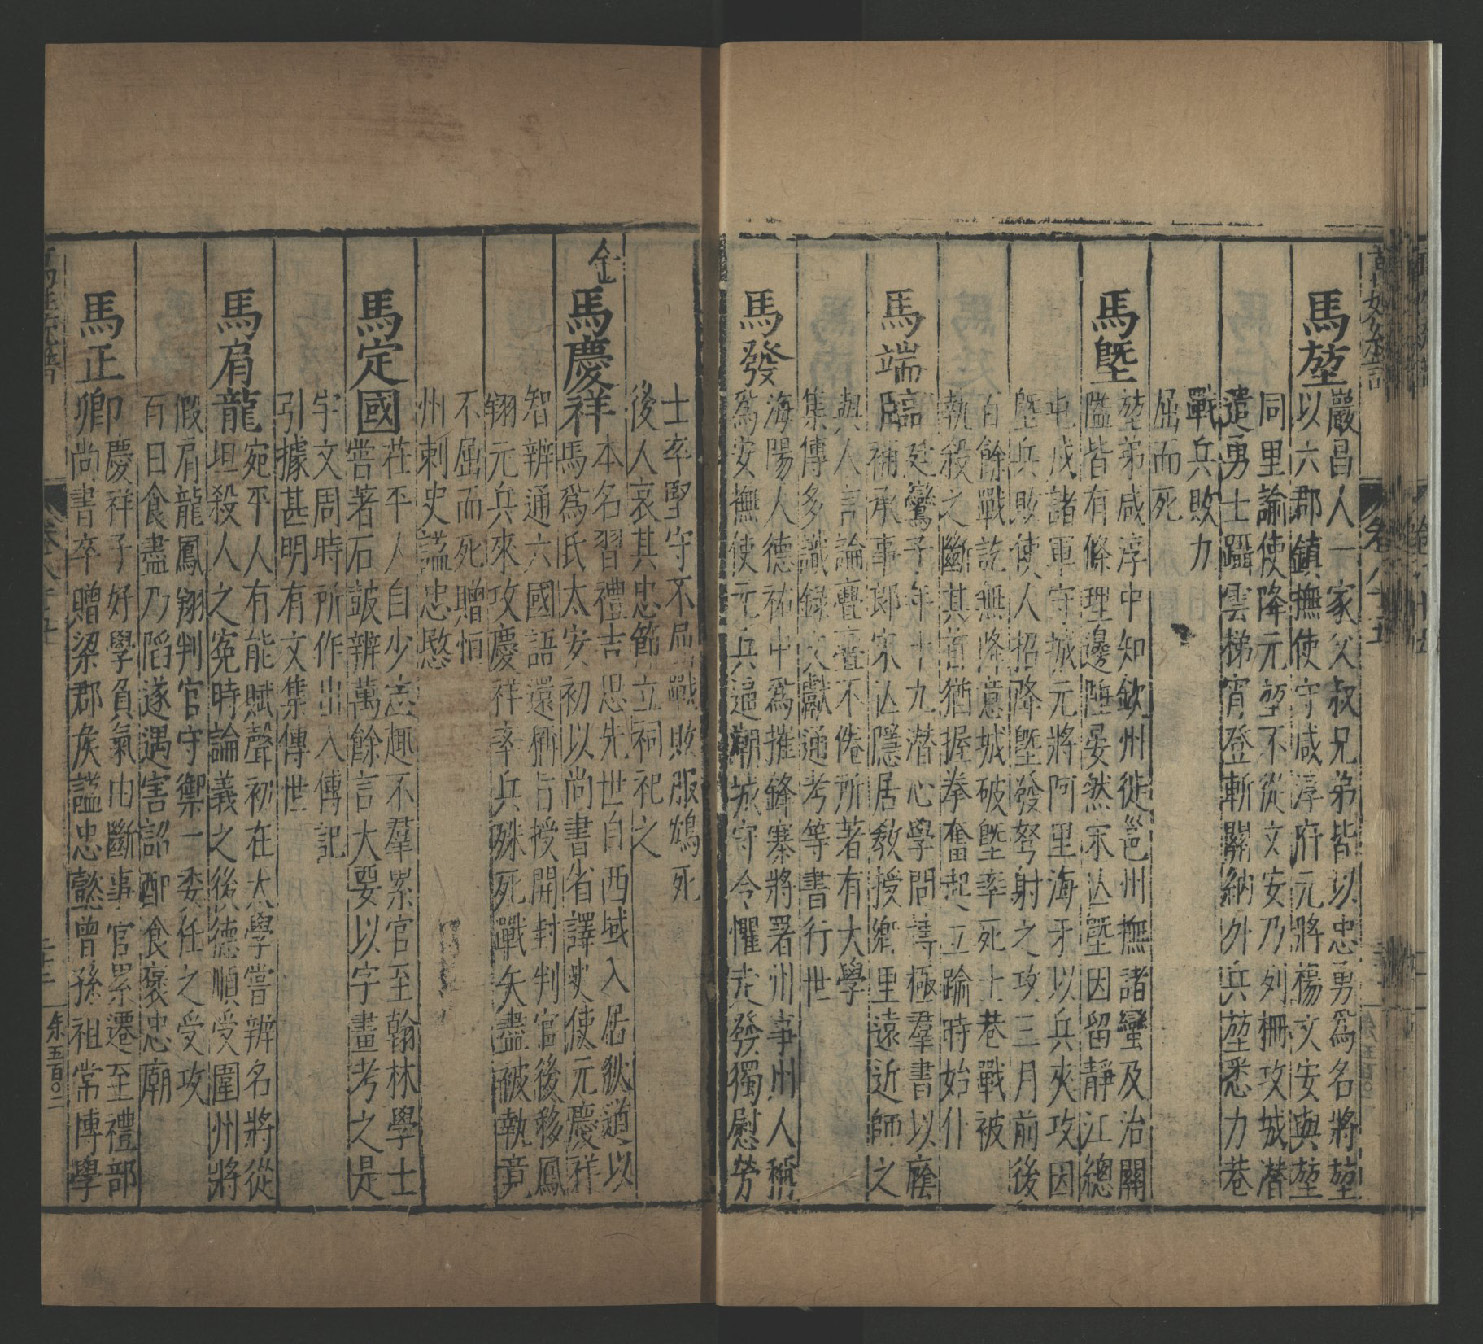 馬堃
巖昌人一家父叔兄弟皆以忠勇爲名將堃
以六郡鎮撫使守咸淳府元將楊文安與堃
同里諭使降元堃不從文安乃列柵攻城潛
遣勇士躡雲梯宵登斬關納外兵堃悉力巷
戰兵敗力
屈而死
馬塈
堃弟咸淳中知欽州徙邕州撫諸蠻及治關
隘皆有條理邊陲晏然宋亾塈因留靜江總
屯戍諸軍守城元將阿里海牙以兵夾攻因
塈兵敗使人招降塈發弩射之攻三月前後
百餘戰訖無降意城破塈率死士巷戰被
執殺之斷其首猶握拳奮起立踰時始仆
馬端臨
廷鸞子年十九潛心學問淹極羣書以廕
補承事郎宋亾隱居敎授鄉里遠近師之
與人言論亹亹不倦所著有大學
集傳多識錄文獻通考等書行世
馬發
海陽人德祐中爲摧鋒寨將署州事州人稱
爲安撫使元兵逼潮城守令懼走發獨慰勞
士卒堅守不屈戰敗服鴆死
後人哀其忠節立祠祀之
金
馬慶祥
本名習禮吉思先世自西域入居狄道以
馬爲氏太安初以尚書省譯史使元慶祥
智辨通六國語還授開封判官後移鳳
翔元兵來攻慶祥率兵殊死戰矢盡被執竟
不屈而死贈恒
州刺史謚忠愍
馬定國
茌平人自少志趣不羣累官至翰林學士
嘗著石鼓辨萬餘言大要以字畫考之是
宇文周時所作出入傳記
引據甚明有文集傳世
馬肩龍
宛平人有能賦聲初在太學嘗辨名將從
坦殺人之冤時論義之後德順受圍州將
假肩龍鳳翔判官守禦一委任之受攻
百日食盡乃陷遂遇害詔配食褒忠廟
馬正卿
慶祥子好學負氣由斷事官累遷至禮部
尚書卒贈梁郡侯謚忠懿曾孫祖常博學
卷八十五